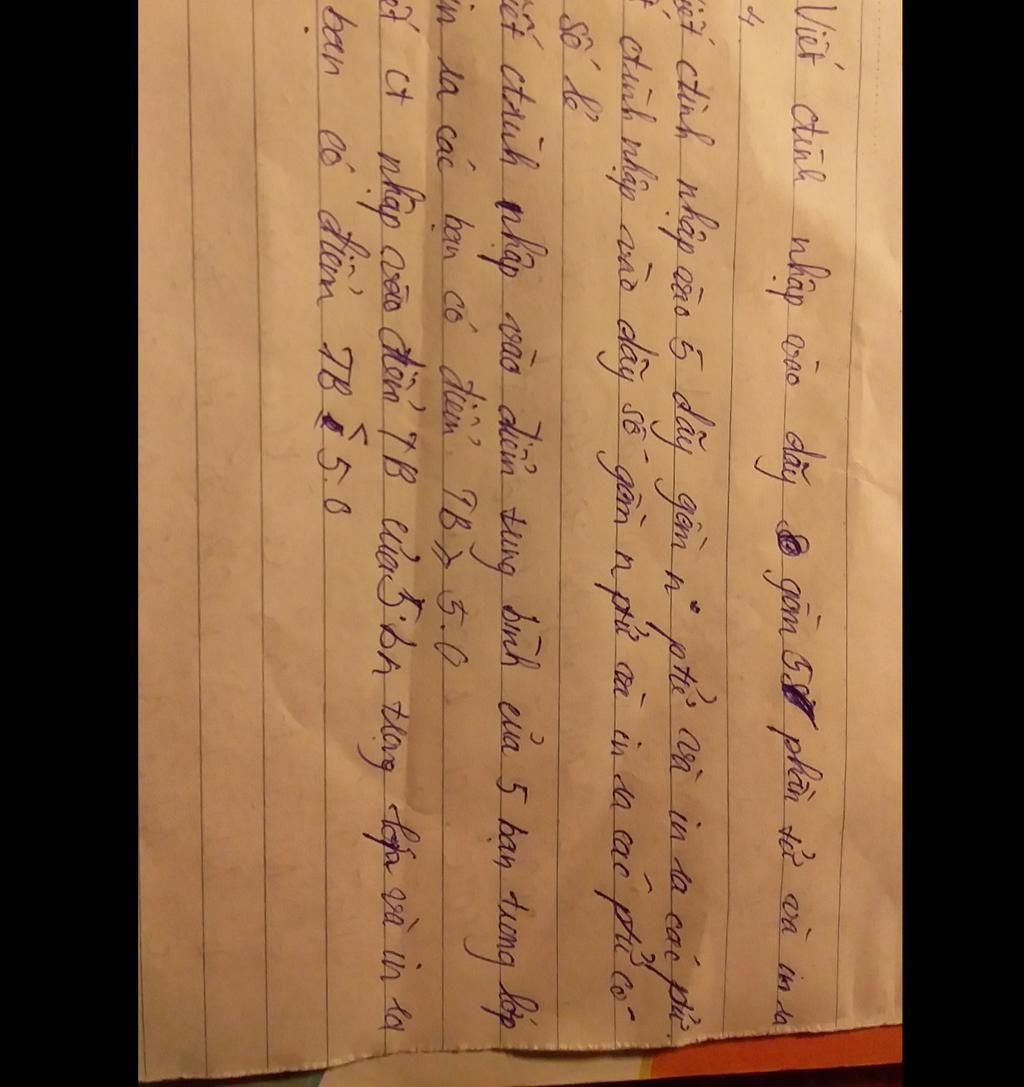 Viết ctrình nhập vào dãy gồm 5 phần tử và in ra
4
iết ctrình nhập vào 5 dãy gồm n ptử và in ra các ptử.
t ctrình nhập vào dãy số gồm n ptử và in ra các ptử có
số lẻ
iết ctrình nhập vào điểm trung bình của 5 bạn trong lớp
in ra các bạn có điểm TB ≥ 5.0
ết ct nhập vào điểm TB của 5 bn trong lớp và in ra
bạn có điểm TB ≤ 5.0